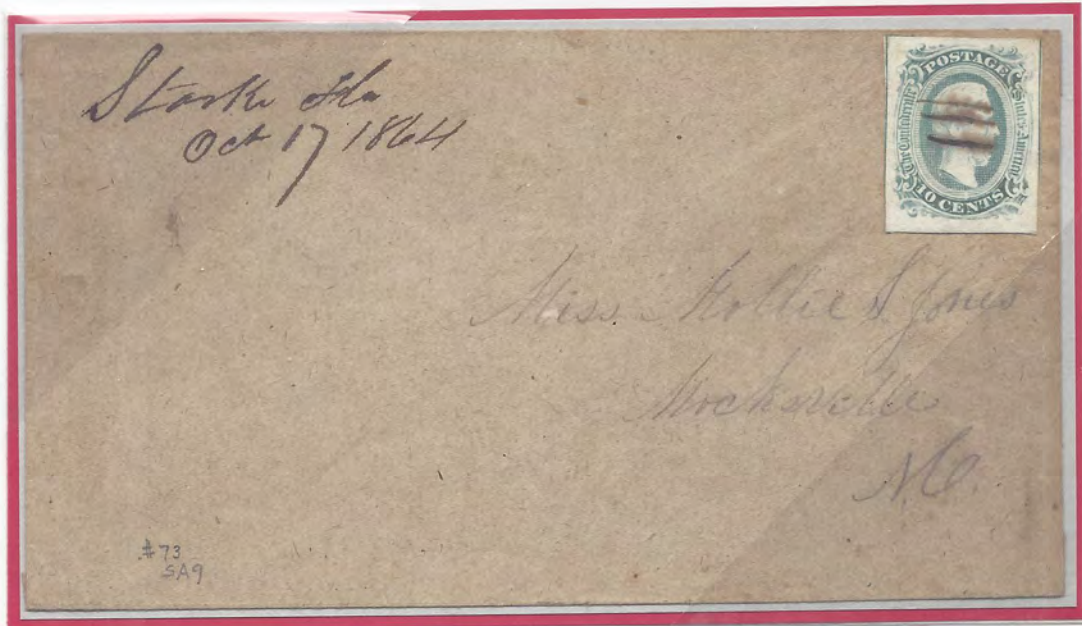 Starke Fla
Oct 17 1864
POSTAGE
The Confederate States of America
10 CENTS
Miss Hollie S Jones
Mocksville
NC.
#73
SA9